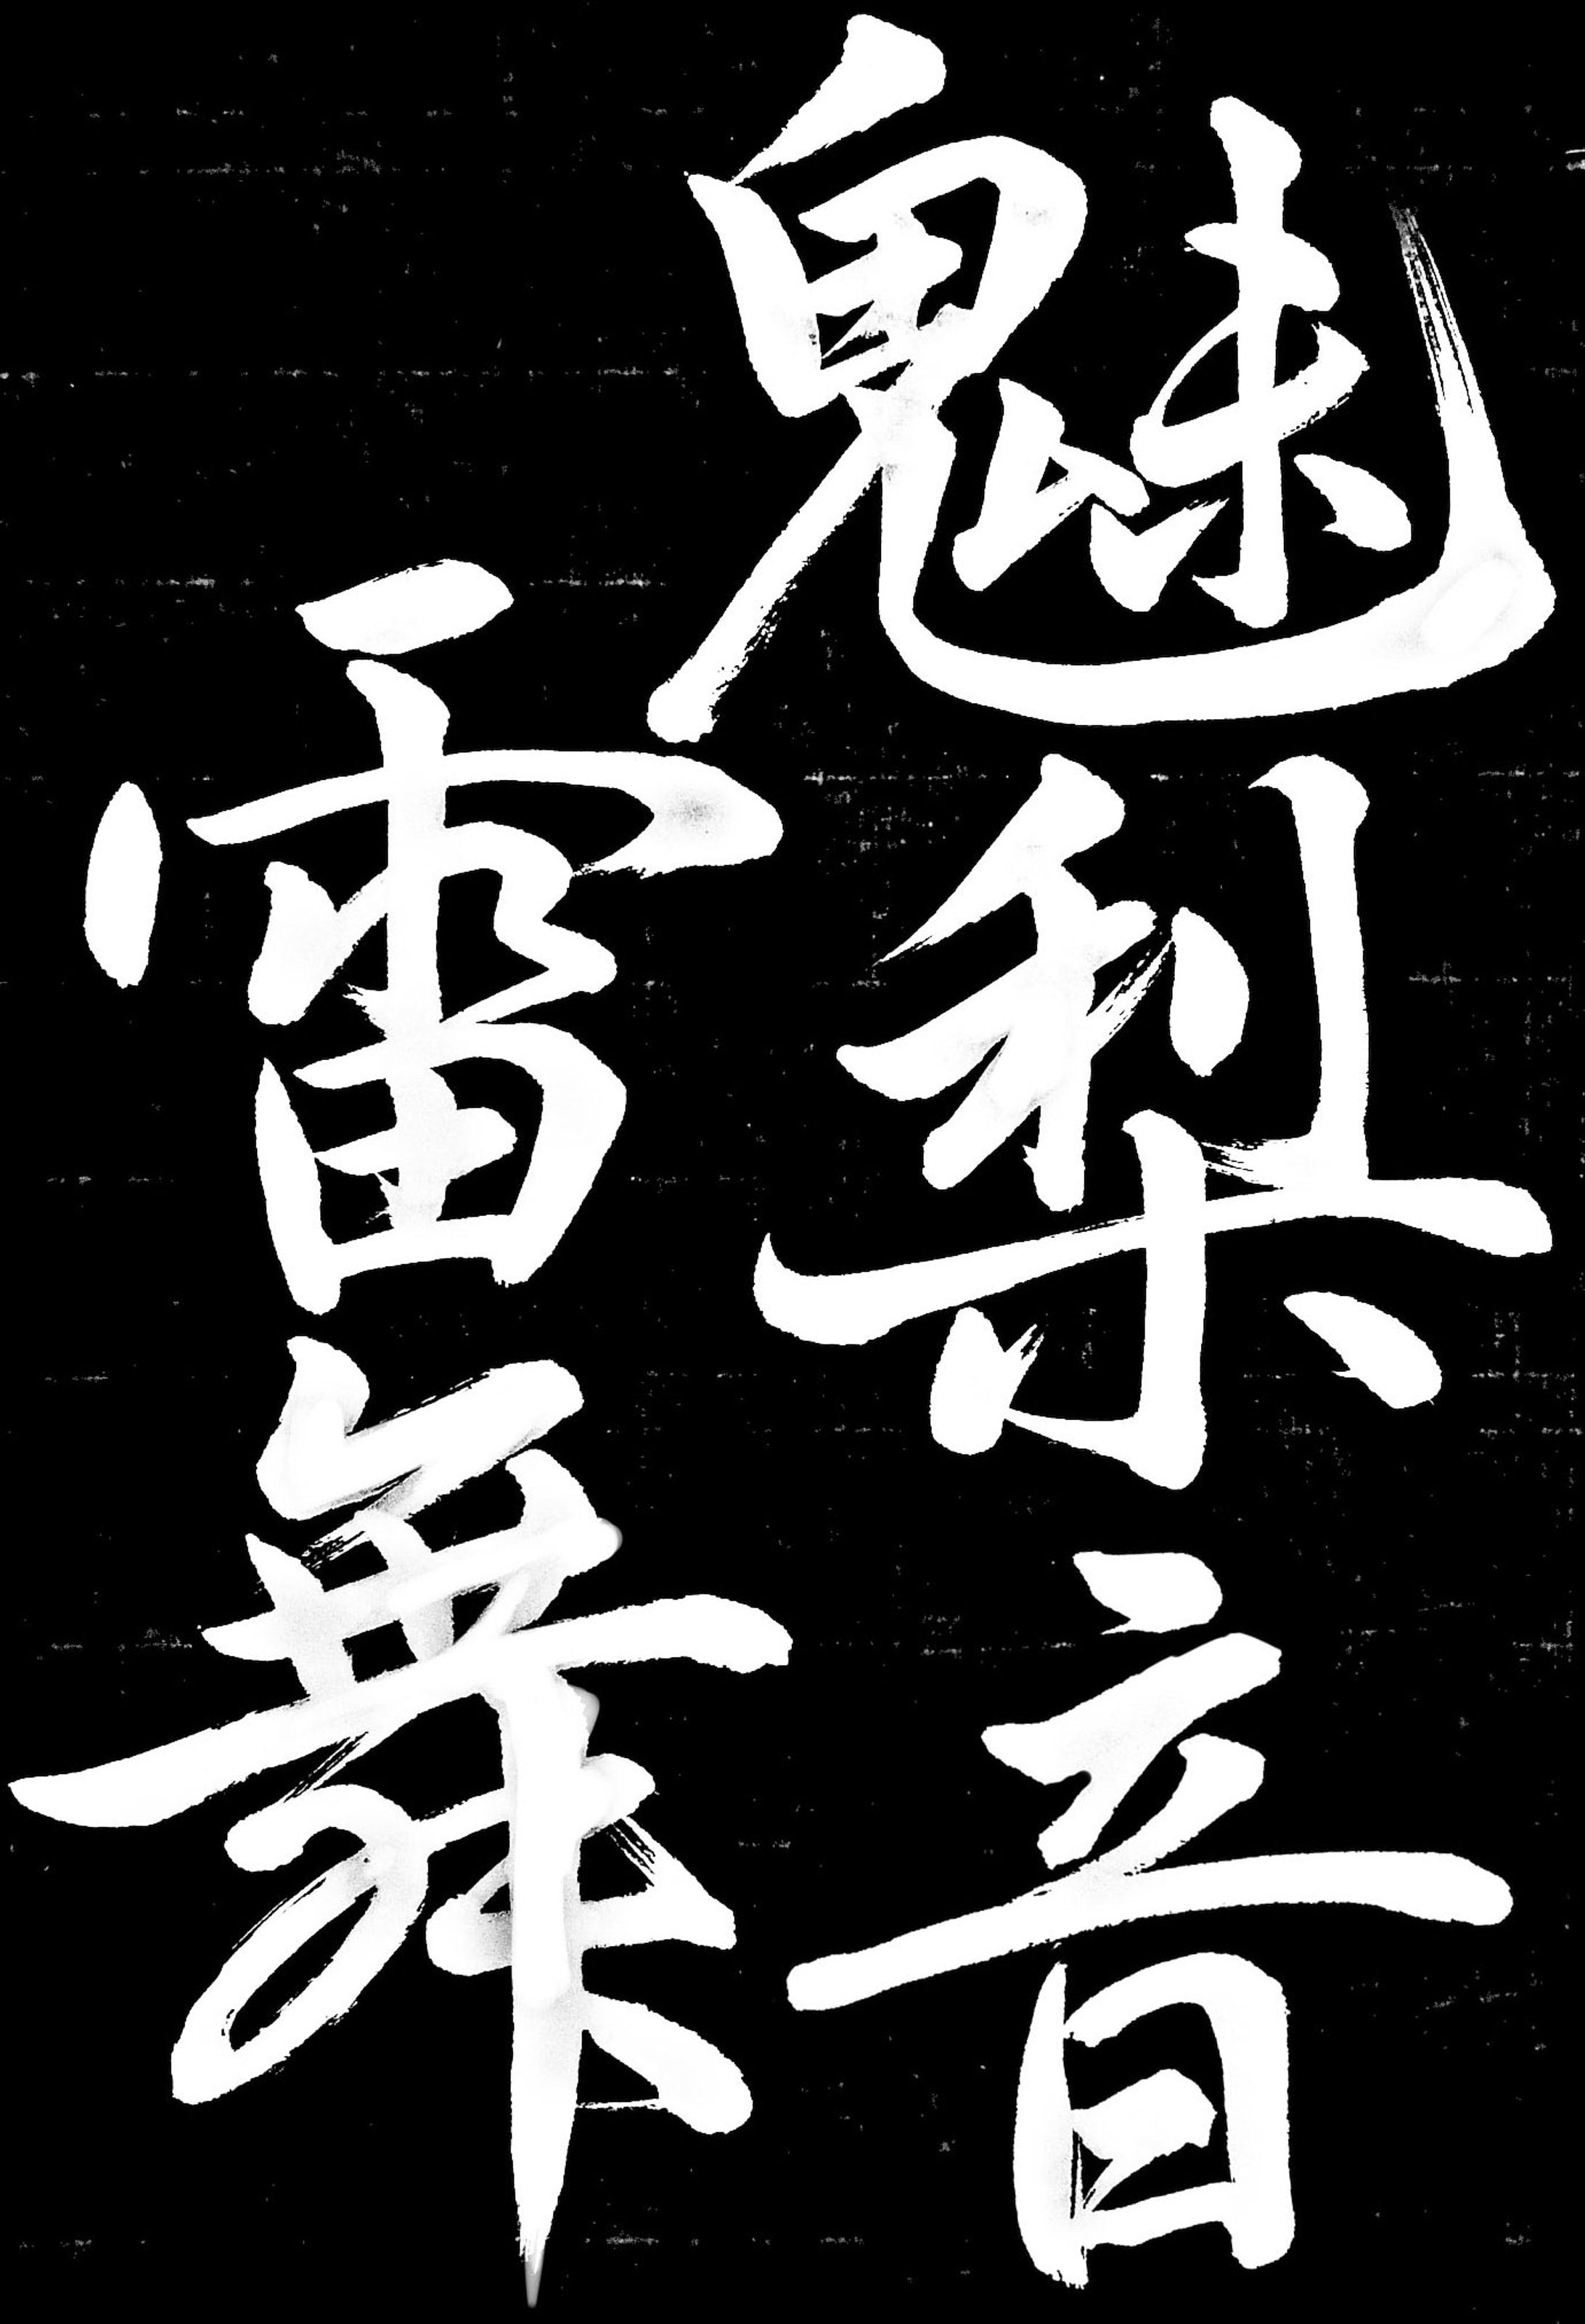 魅梨音
雷舞